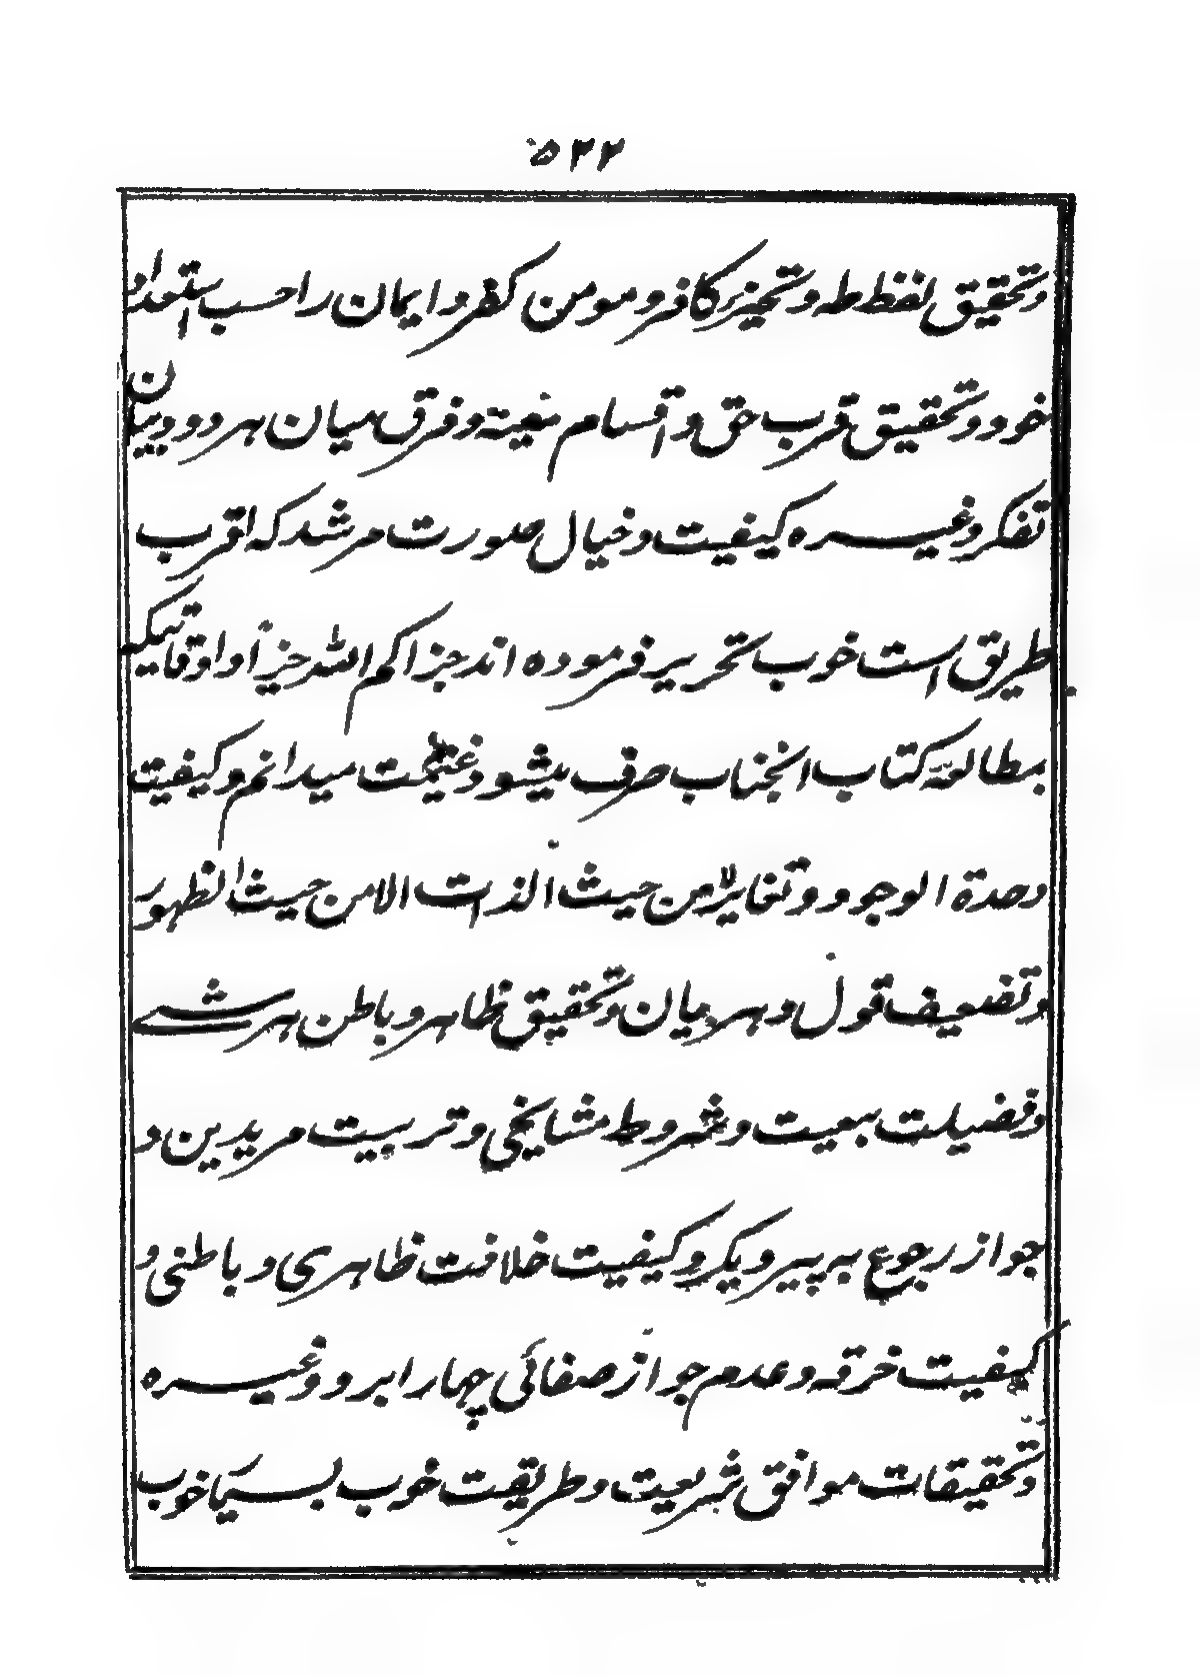 ۵۲۲
وتحقیق لفظ طه و تخییر کافر و مومن کفر و ایمان را حسب استعداد
خود و تحقیق قرب حق و اقسام معیته و فرق میان هر دو و بیان
تفکر وغیره کیفیت و خیال صورت مرشد که اقرب
طریق است خوب تحریر فرموده اند جزاکم الله خیراً و اوقاتیکه
بمطالعهٔ کتاب آنجناب صرف میشود غنیمت میدانم و کیفیت
وحدة الوجود و تغایر لا من حیث الذات الا من حیث الظهور
وتضعیف قول وهر بیان وتحقیق ظاهر و باطن هر شے
وفضیلت بیعت و شروط مشایخی و تربیت مریدین و
جواز رجوع به پیر دیگر و کیفیت خلافت ظاهری و باطنی و
کیفیت خرقه و عدم جواز صفائی چهار ابرو وغیره
وتحقیقات موافق شریعت و طریقت خوب بسیار خوب